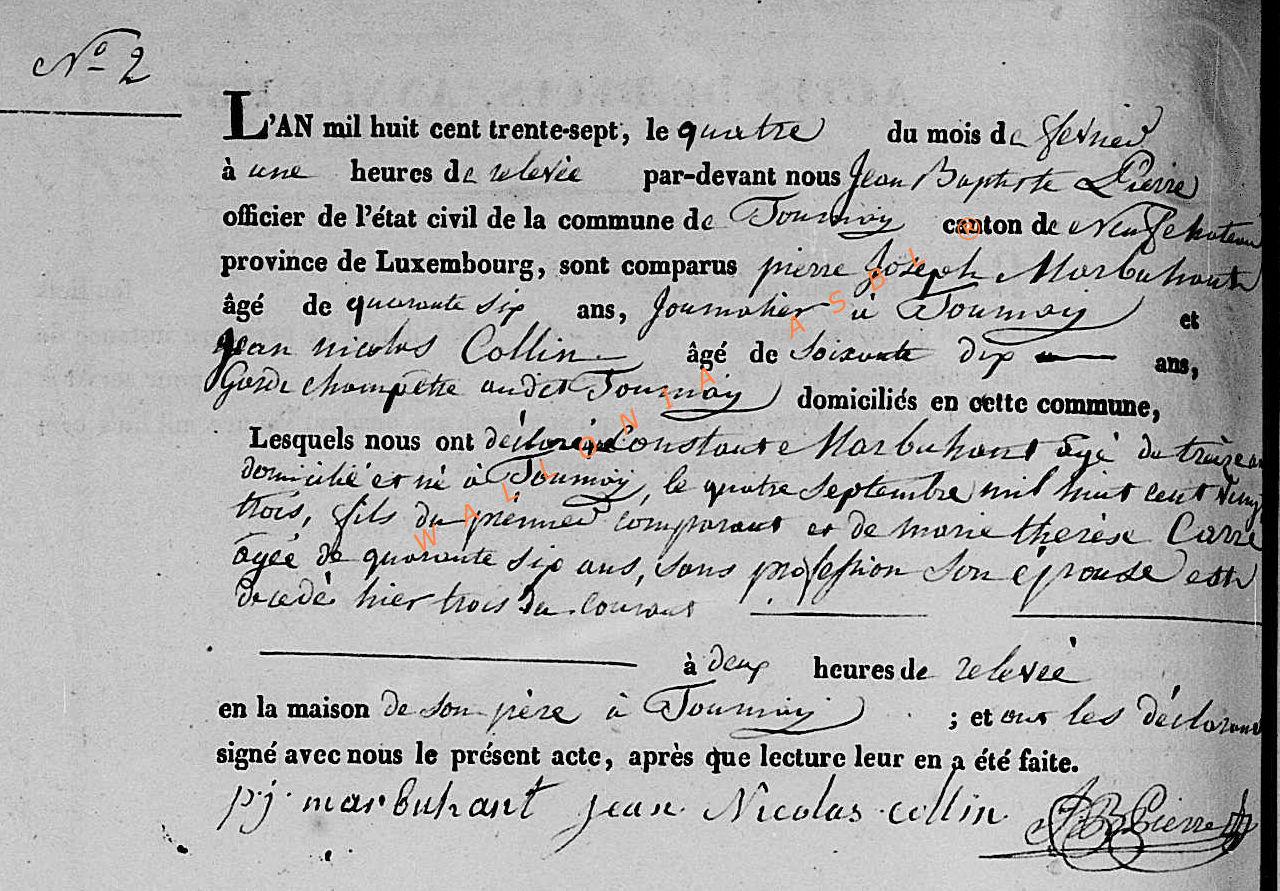 N° 2
L'AN mil huit cent trente-sept, le quatre du mois de fevrier
à une heures de relevée par-devant nous Jean Baptiste Pierre
officier de l'état civil de la commune de Tournay canton de Neufchateau
province de Luxembourg, sont comparus pierre Joseph Marbuhant
âgé de quarante six ans, Journalier à Tournay et
Jean nicolas Collin âgé de Soixante dix ans,
Garde champêtre audit Tournay domiciliés en cette commune,
Lesquels nous ont déclaré Constant Marbuhant âgé de treize ans
domicilié et né à Tournay, le quatre Septembre mil huit cent vingt
trois, fils du premier comparant et de marie thérèse Carré
âgée de quarante six ans, sans profession son épouse est
décédé hier trois du Courant
à deux heures de relevée
en la maison de son père à Tournay ; et ont les déclarans
signé avec nous le présent acte, après que lecture leur en a été faite.
p j marbuhant jean Nicolas collin JB Pierre
WALLONIA ASBL ©